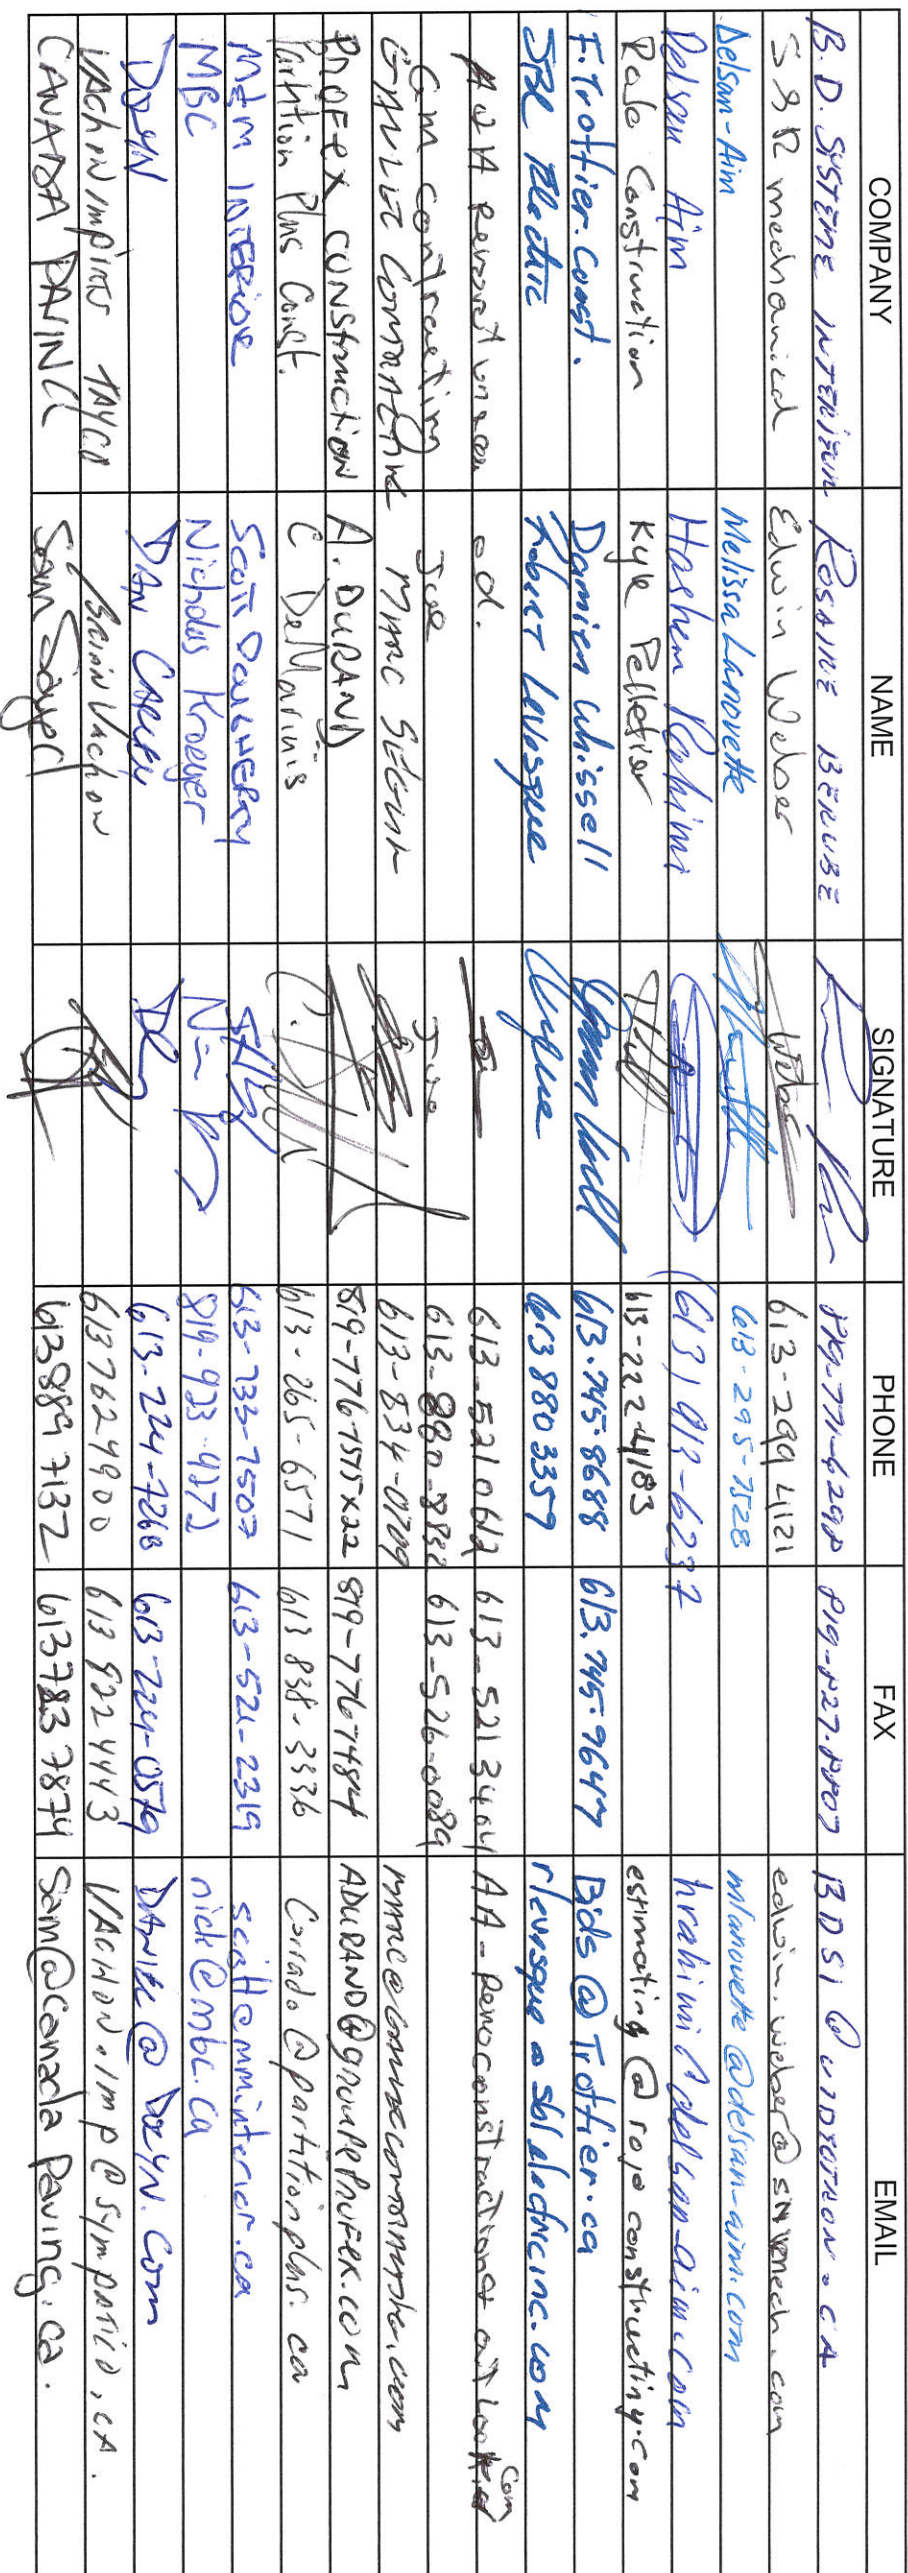 COMPANY NAME SIGNATURE PHONE FAX EMAIL
B.D. SYSTEME INTERIEUR ROSAIRE BERUBE 819-771-6290 819-827-8807
S&R mechanical Edwin Weber Weber 613-299 4121 edwin.weber@ mech.com
Delsan-Aim Melissa Lanouette 613-295-7528 mlanouette@delsan-aim.com
Delsan Aim Hashem Rahimi (613) 913-6237 hrahimi@delsan-aim.com
Construction Kyle Pelletier 613-222-4183 estimating@
F. Trottier. Const. Damien Whissell 613.745.8688 613.745.9647 Bids@Trottier.ca
SBL Electric Robert Levesque 613 880 3357 rlevesque@sblelectricinc.com
613-521 3404
contracting Joe Joe 613-526-0089
MARC SEGUIN 613-834-0709
PROFEX CONSTRUCTION A. DURAND 819-776-7575x22 819-776-7484 ADURAND@GROUPEPROFEX.COM
Partition Plus Const. C DeMarinis 613-265-6571 613 838-3336 Corrado@partitionplus.ca
M&M INTERIOR SCOTT DOUGHERTY 613-733-7507 613-521-2319 scott@mminterior.ca
MBC Nicholas Kroeyer 819-923-9372 nick@mbc.ca
DOZYN DAN 613-224-7268 613-224-0579 @DOZYN.com
VACHON IMPORTS TAYCO Brian Vachon 613 762 4900 613 822 4443 VACHON.IMP@SYMPATICO.CA.
CANADA PAVING Sam 613 889 7132 613 783 7874 Sam@Canada Paving.ca.